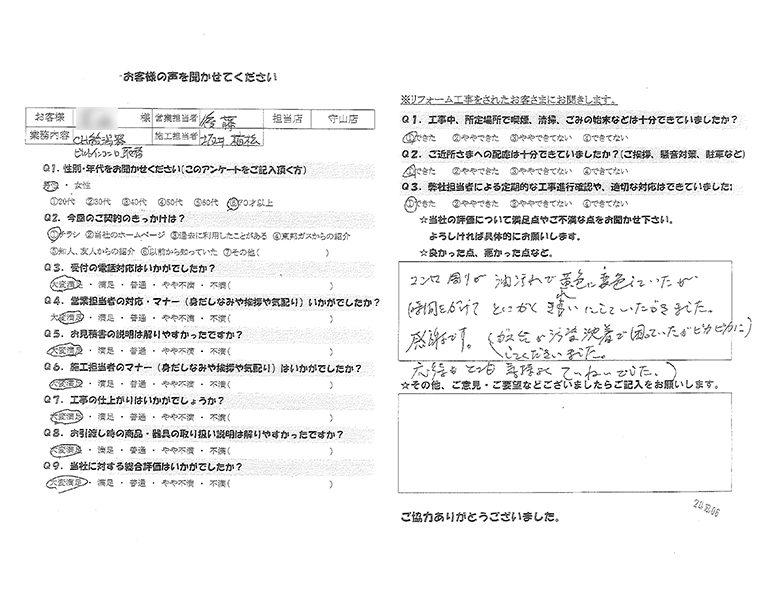 お客様の声を聞かせてください
お客様 様 営業担当者 後藤 担当店 守山店
業務内容 CH給湯器 ビルトインコンロ取替 施工担当者
Q1. 性別・年代をお聞かせください(このアンケートをご記入頂く方)
男性 ・ 女性
①20代 ②30代 ③40代 ④50代 ⑤60代 ⑥70才以上
Q2. 今回のご契約のきっかけは?
①チラシ ②当社のホームページ ③過去に利用したことがある ④東邦ガスからの紹介
⑤知人、友人からの紹介 ⑥以前から知っていた ⑦その他( )
Q3. 受付の電話対応はいかがでしたか?
大変満足 ・ 満足 ・ 普通 ・ やや不満 ・ 不満( )
Q4. 営業担当者の対応・マナー(身だしなみや挨拶や気配り)いかがでしたか?
大変満足 ・ 満足 ・ 普通 ・ やや不満 ・ 不満( )
Q5. お見積書の説明は解りやすかったですか?
大変満足 ・ 満足 ・ 普通 ・ やや不満 ・ 不満( )
Q6. 施工担当者のマナー(身だしなみや挨拶や気配り)はいかがでしたか?
大変満足 ・ 満足 ・ 普通 ・ やや不満 ・ 不満( )
Q7. 工事の仕上がりはいかがでしょうか?
大変満足 ・ 満足 ・ 普通 ・ やや不満 ・ 不満( )
Q8. お引渡し時の商品・器具の取り扱い説明は解りやすかったですか?
大変満足 ・ 満足 ・ 普通 ・ やや不満 ・ 不満( )
Q9. 当社に対する総合評価はいかがでしたか?
大変満足 ・ 満足 ・ 普通 ・ やや不満 ・ 不満( )
※リフォーム工事をされたお客さまにお聞きします。
Q1. 工事中、所定場所で喫煙、清掃、ごみの始末などは十分できていましたか?
①できた ②ややできた ③ややできてない ④できてない
Q2. ご近所さまへの配慮は十分できていましたか?(ご挨拶、騒音対策、駐車など)
①できた ②ややできた ③ややできてない ④できてない
Q3. 弊社担当者による定期的な工事進行確認や、適切な対応はできていましたか
①できた ②ややできた ③ややできてない ④できてない
☆当社の評価について満足点やご不満な点をお聞かせ下さい。
よろしければ具体的にお願いします。
☆良かった点、悪かった点など。
コンロ周りが油汚れで黄色に変色していたが
時間をかけてとにかくにしていただきました。
感謝です。(ガス台が汚染沈着で困っていたがピカピカに
してくださいました。
ていねいでした。)
☆その他、ご意見・ご要望などございましたらご記入をお願いします。
ご協力ありがとうございました。